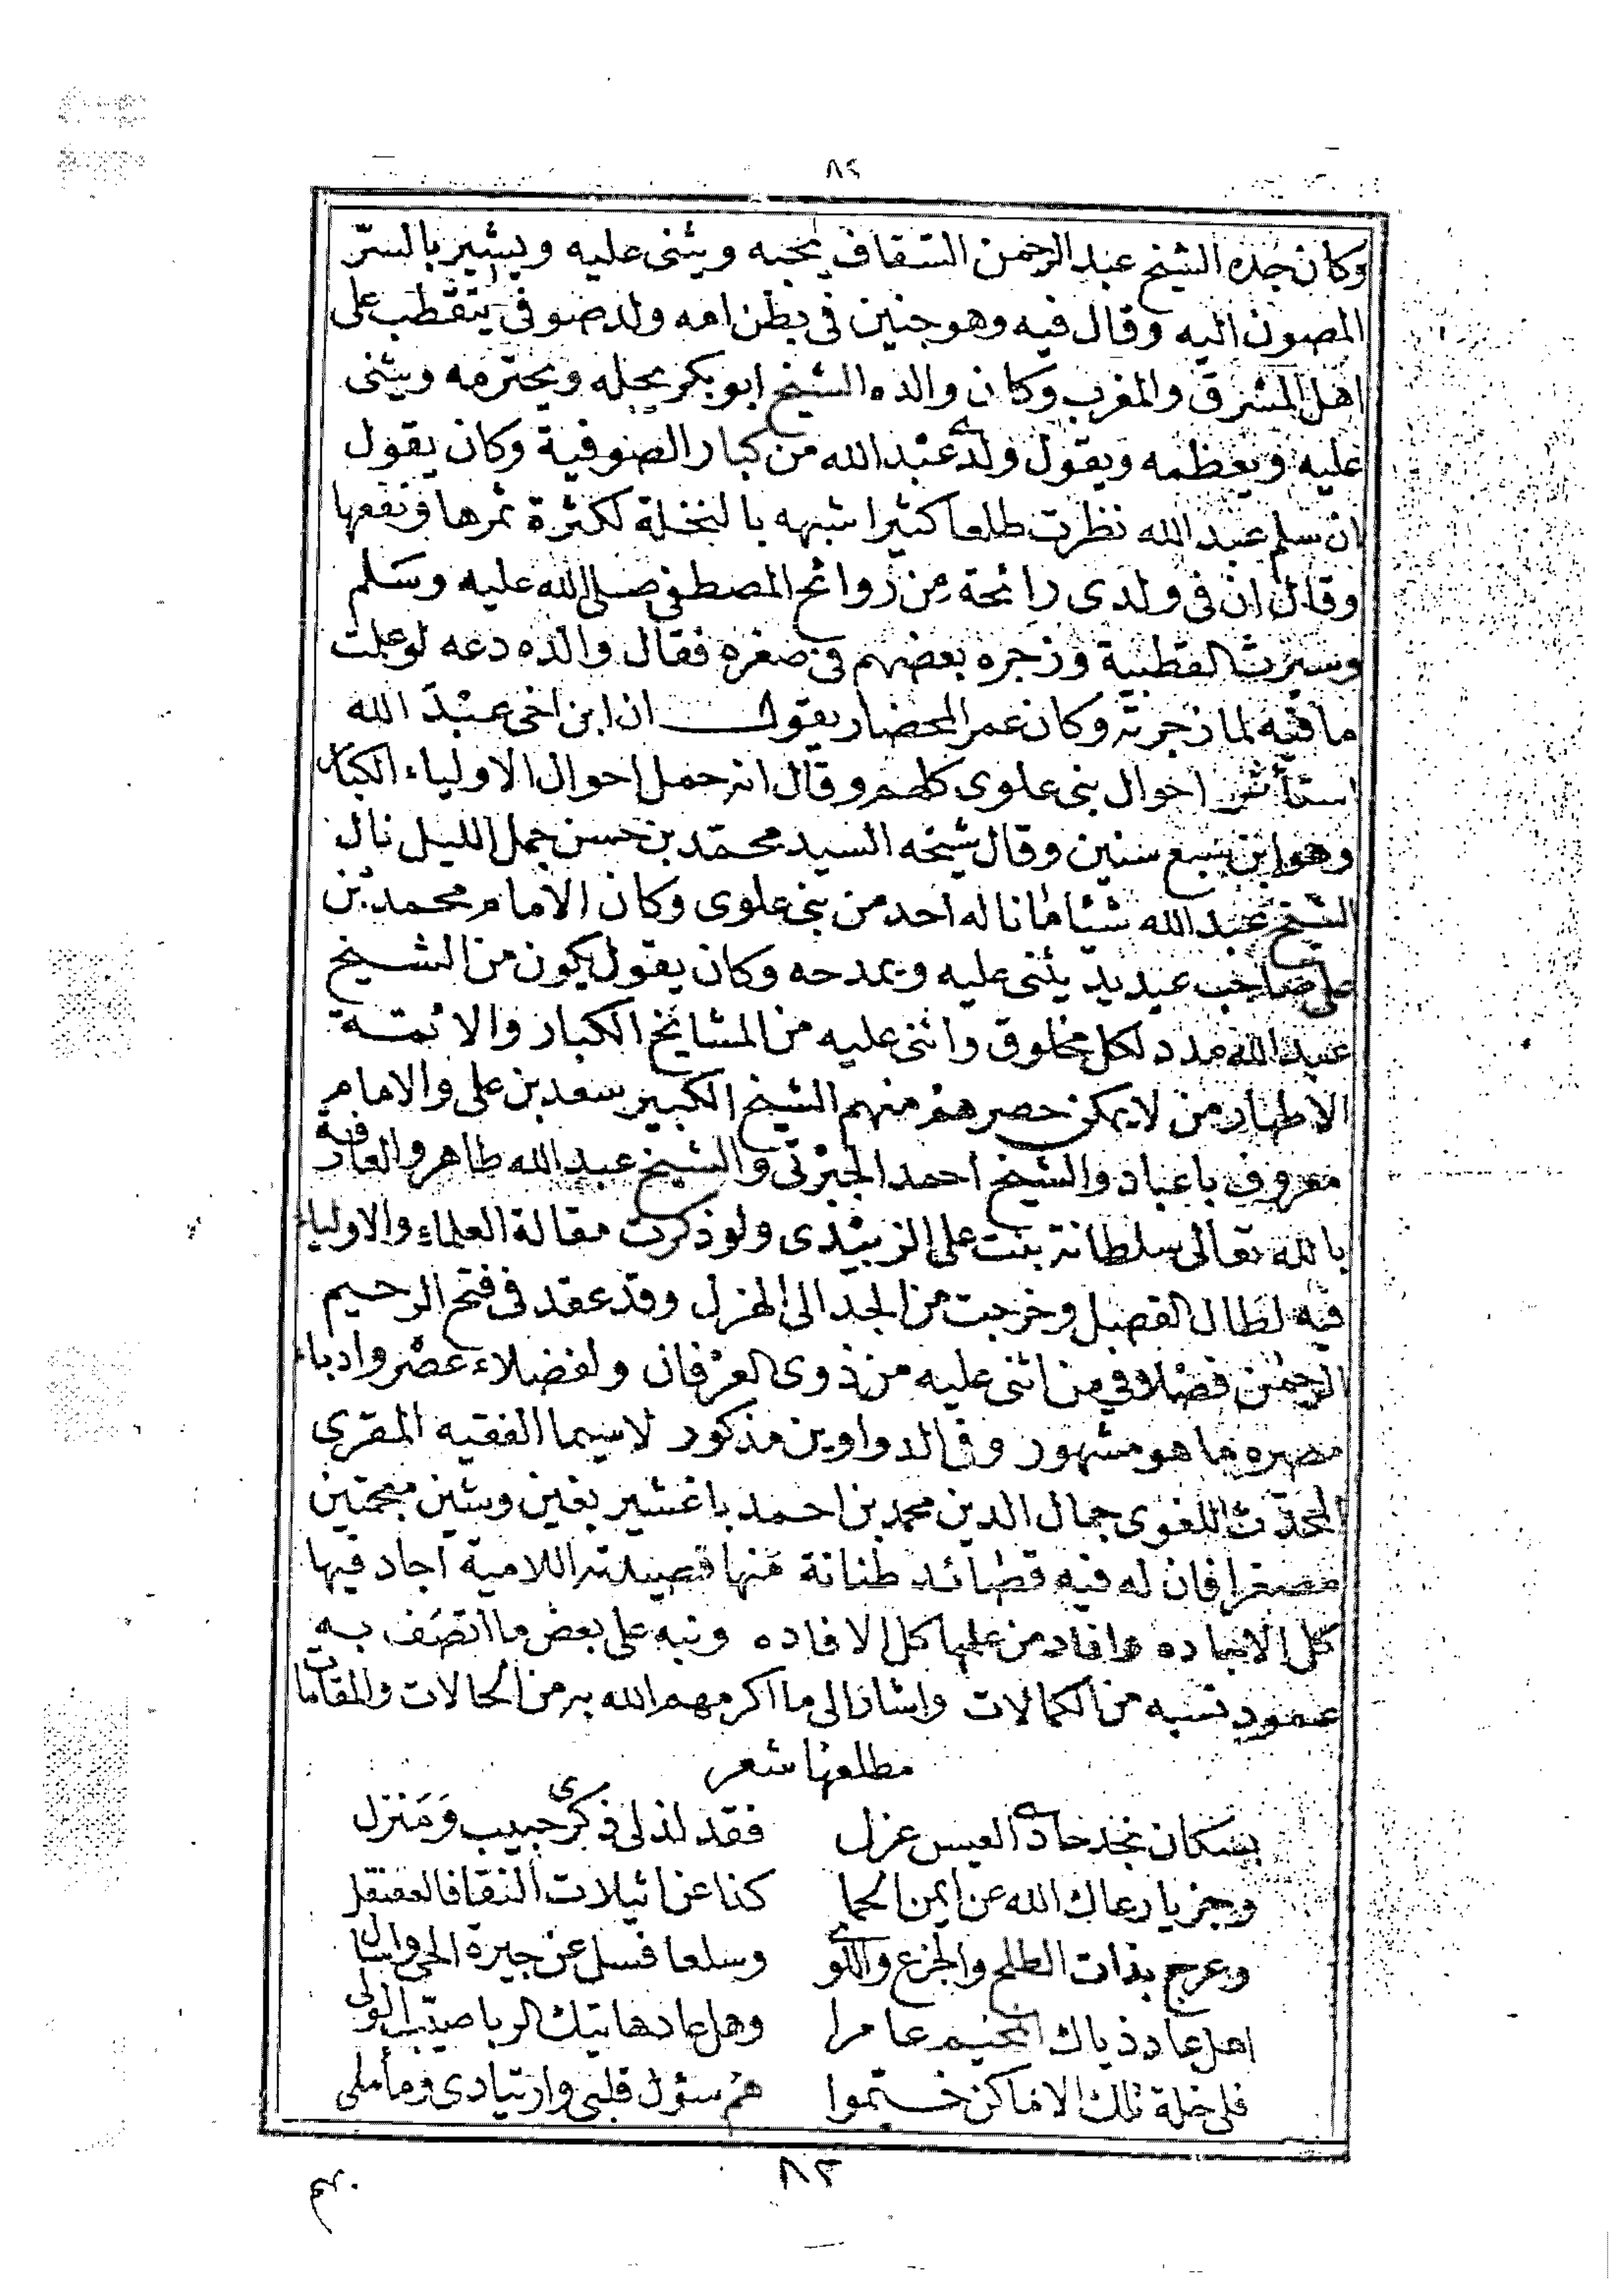 ٨٢
وكان جده الشيخ عبد الرحمن السقاف يحبه ويثنى عليه ويشير بالسرّ
المصون اليه وقال فيه وهو جنين فى بطن امه ولد صوفى يتقطب على
اهل المشرق والمغرب وكان والده الشيخ ابو بكر يجله ويحترمه ويثنى
عليه ويعظمه ويقول ولدى عبد الله من كبار الصوفية وكان يقول
ان سلم عبد الله نظرت طلعا كثيرا شبهه بالنخلة لكثرة ثمرها ونفعها
وقال ان فى ولدى رائحة من روائح المصطفى صلى الله عليه وسلم
وسرت القطبية وزجره بعضهم فى صغره فقال والده دعه لو علمت
ما فيه لما زجرته وكان عمر المحضار يقول ان ابن اخى عبد الله
استأثر احوال بنى علوى كلهم وقال انه حمل احوال الاولياء الكبار
وهو ابن سبع سنين وقال شيخه السيد محمد بن حسن جمل الليل نال
الشيخ عبد الله شيئا ما ناله احد من بنى علوى وكان الامام محمد بن
على صاحب عيديد يثنى عليه ويمدحه وكان يقول يكون من الشيخ
عبد الله مدد لكل مخلوق واثنى عليه من المشايخ الكبار والائمة
الاطهار من لا يمكن حصرهم منهم الشيخ الكبير سعد بن على والامام
معروف باعباد والشيخ احمد الجبرتى والشيخ عبد الله طاهر والعارفة
بالله تعالى سلطانة بنت على الزبيدى ولو ذكرت مقالة العلماء والاولياء
فيه لطال الفصل وخرجت من الجد الى الهزل وقد عقد فى فتح الرحيم
الرحمن فصلا فى من اثنى عليه من ذوى العرفان ولفضلاء عصر وادباء
مصره ما هو مشهور وفى الدواوين مذكور لاسيما الفقيه المقرى
المحدث اللغوى جمال الدين محمد بن احمد باغشير بغين وشين معجمتين
مصغرا فان له فيه قصائد طنانة منها قصيدته اللامية اجاد فيها
كل الاجاده وافاد من علمها كل الافاده ونبه على بعض ما اتصف به
عمود نسبه من الكمالات واشار الى ما اكرمهم الله به من الحالات والمقامات
مطلعها شعر
بسكان نجد حادى العيس عزل فقد لذ لى ذكرى حبيب وَمَنزل
وجز يا رعاك الله عن ايمن الحما كذا عن اثيلات النقا فالعقنقل
وعرج بذات الطلح والجزع واللوى وسلعا فسل عن جيرة الحى وانسال
اهل عاد ذياك المخيم عامرا وهل عاد هاتيك الربا صيب الولى
فلى خلة تلك الاماكن خيموا هم سؤل قلبى وارتيادى ومأملى
٨٢